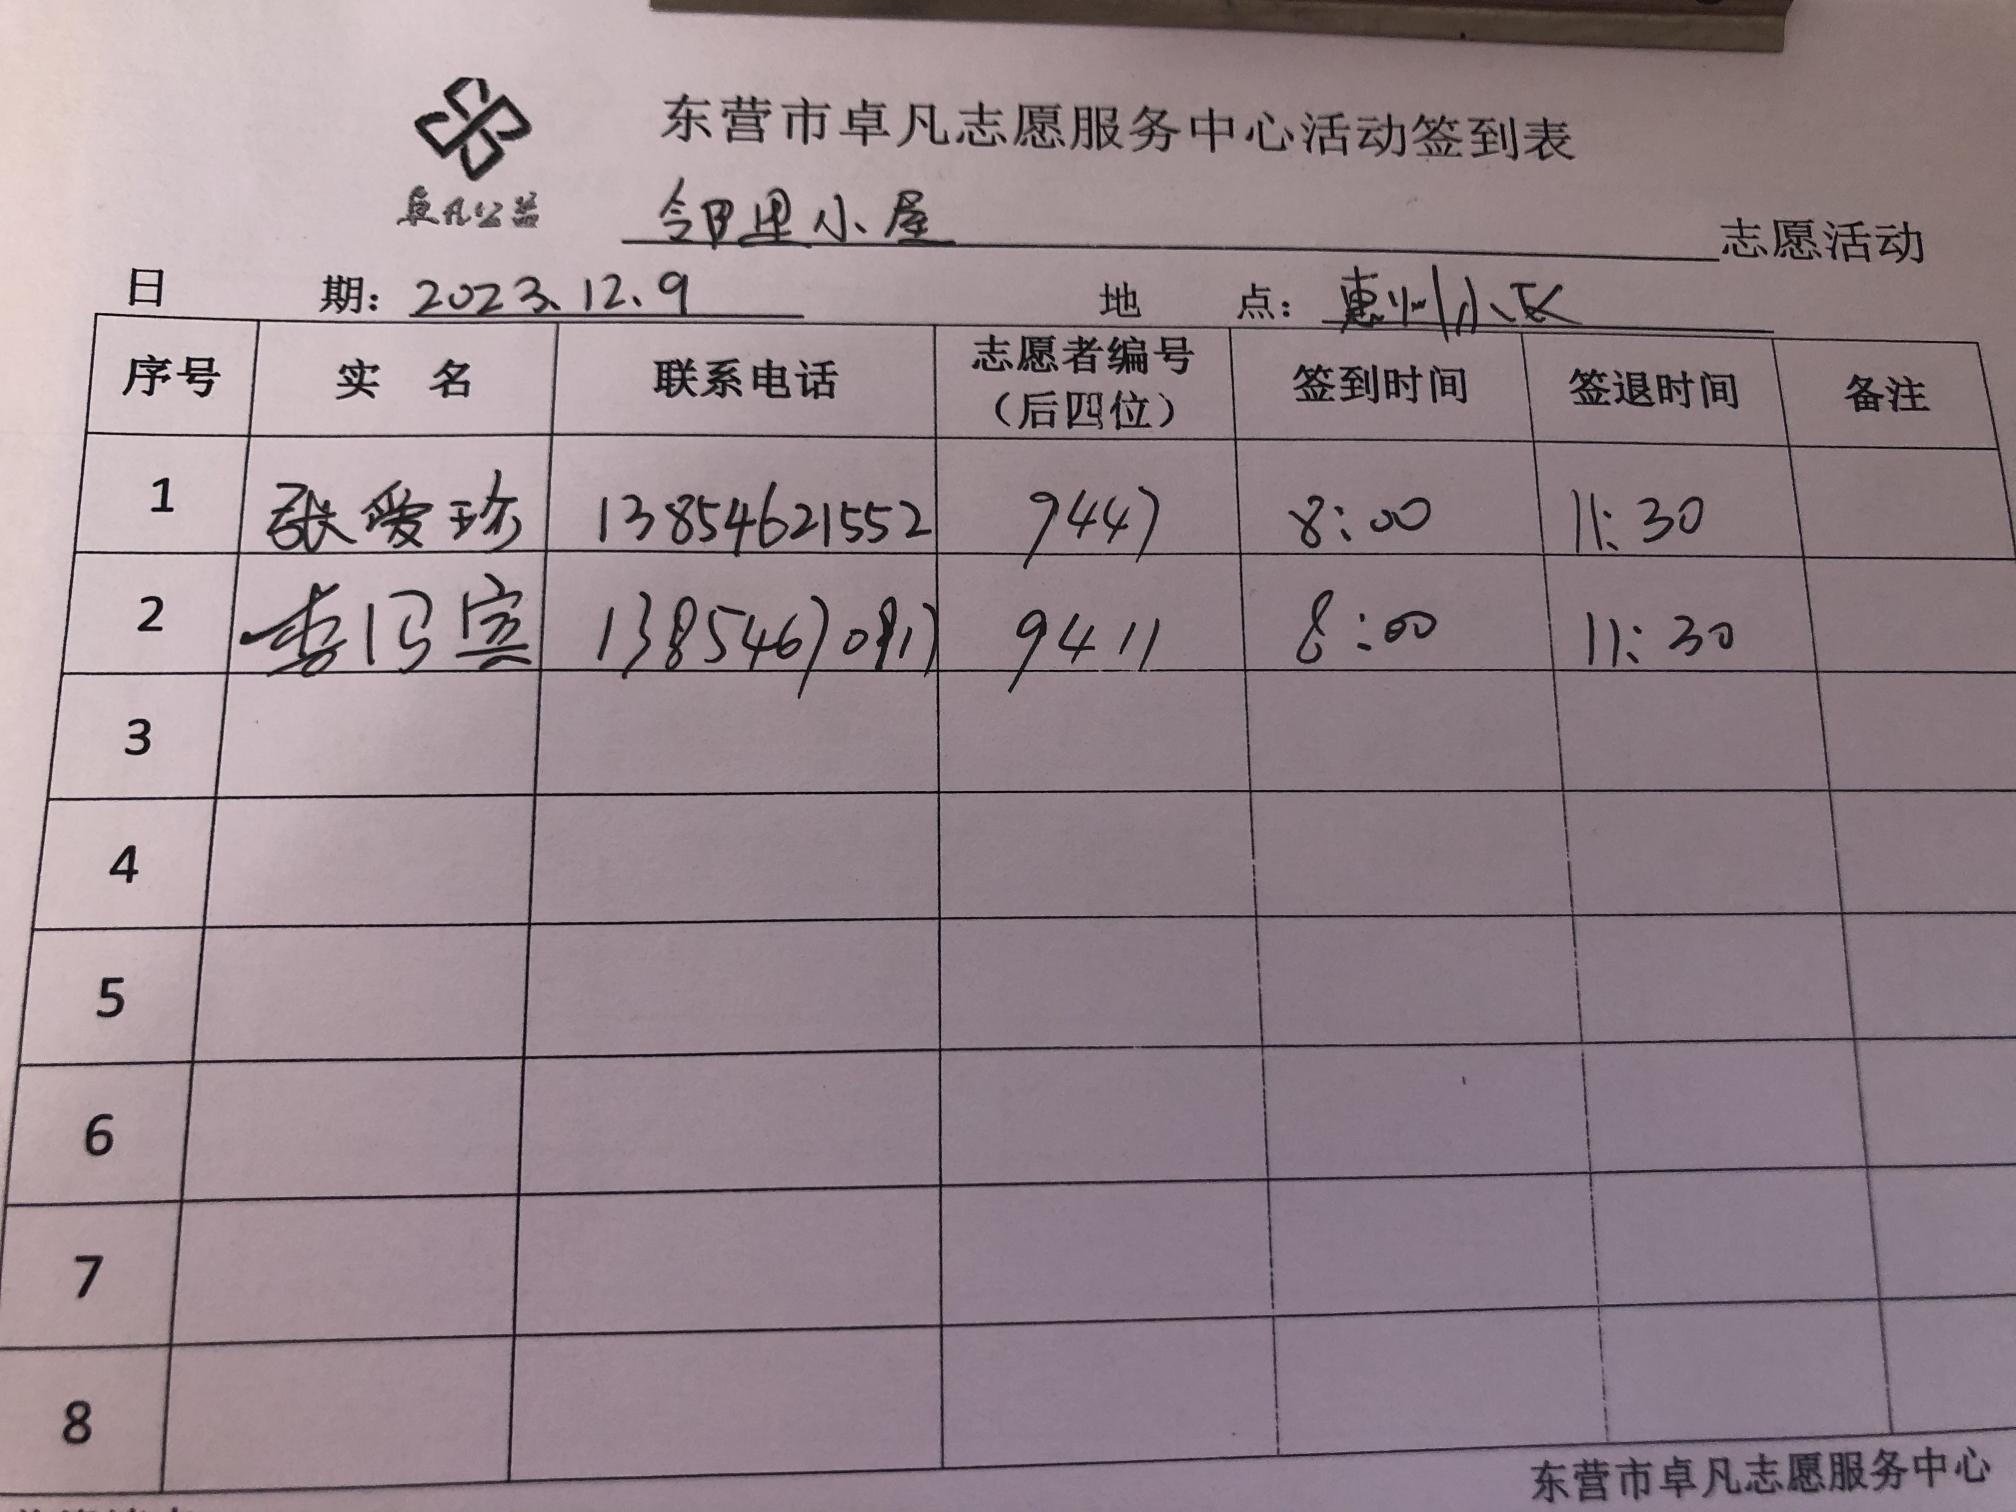 东营市卓凡志愿服务中心活动签到表
卓凡公益
邻里小屋 志愿活动
日 期: 2023.12.9 地 点: 惠州小区
序号 实 名 联系电话 志愿者编号 (后四位) 签到时间 签退时间 备注
1 张爱珍 13854621552 9447 8:00 11:30
2 9411 8:00 11:30
3
4
5
6
7
8
东营市卓凡志愿服务中心